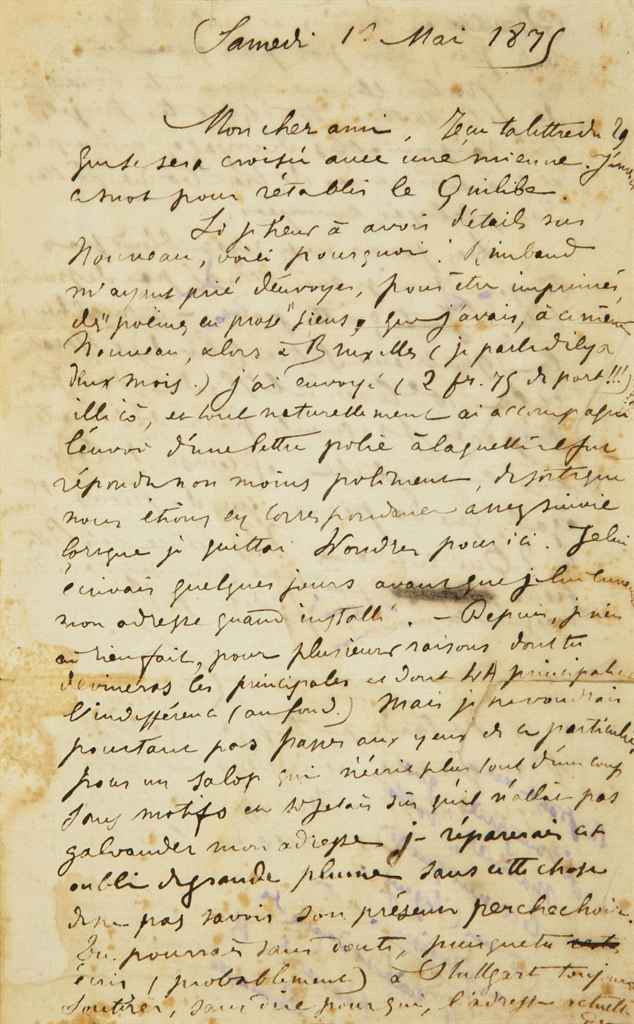 Samedi 1er Mai 1875
Mon cher ami, Reçu ta lettre du 29
qui se sera croisée avec une mienne. J'envoie
ce mot pour rétablir le Quilibe.
Si je tiens à avoir détails sur
Nouveau, voici pourquoi : Rimbaud
m'ayant prié d'envoyer, pour être imprimés,
des "poèmes en prose" siens, que j'avais, à ce même
Nouveau, alors à Bruxelles (je parle d'il y a
deux mois.) j'ai envoyé (2 fr. 75 de port!!!)
illico, et tout naturellement ai accompagné
l'envoi d'une lettre polie à laquelle il fut
répondu non moins poliment, de sorte que
nous étions en correspondance assez suivie
lorsque je quittai Londres pour ici. Je lui
écrivais quelques jours avant que je lui
mon adresse quand installé. – Depuis, je n'en
ai rien fait, pour plusieurs raisons dont tu
devineras les principales et dont LA principale
l'indifférence (au fond.) Mais je ne voudrais
pourtant pas passer aux yeux de ce particulier
pour un salop qui n'écrit plus tout d'un coup
sans motifs et si j'étais sûr qu'il n'allât pas
galvauder mon adresse je réparerais cet
oubli de grande plume sans cette chose
de ne pas savoir son présent perchechoir.
Tu pourrais sans doute, puisque tu
écris (probablement) à Stuttgart toujours
soutirer, sans dire pour qui, l'adresse actuelle